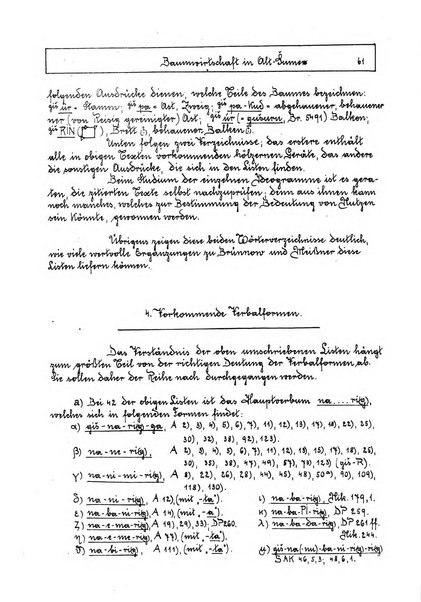 Baumwirtschaft in Alt-Šumer 61
folgenden Ausdrücke dienen, welche Teile des Baumes bezeichnen:
giš úr - Stamm; giš pa - Ast, Zweig; giš pa-kud - abgehauener, behauener
ner (von Reisig gereinigter) Ast; giš úr (- gušuru, Br. 5491) Balken;
giš RIN, Brett (?), behauener Balken (?).
Unten folgen zwei Verzeichnisse; das erstere enthält
alle in obigen Texten vorkommenden hölzernen Geräte, das andere
die sonstigen Ausdrücke, die sich in den Listen finden.
Beim Studium der einzelnen Ideogramme ist es gera-
ten, die zitierten Texte selbst nachzuprüfen; denn aus ihnen kann
noch manches, welches zur Bestimmung der Bedeutung von Nutzen
sein könnte, gewonnen werden.
Übrigens zeigen diese beiden Wörterverzeichnisse deutlich,
wie viele wertvolle Ergänzungen zu Brünnow und Meißner diese
Listen liefern können.
4. Vorkommende Verbalformen.
Das Verständnis der oben umschriebenen Listen hängt
zum größten Teil von der richtigen Deutung der Verbalformen ab.
Sie sollen daher der Reihe nach durchgegangen werden.
a) Bei 42 der obigen Listen ist das Hauptverbum na....ri(g),
welches sich in folgenden Formen findet:
α) giš-na-ri(g)-ga, A 2), 3), 4), 5), 6), 7), 11), 12), 13), 17), 18), 22), 25),
30), 32), 38), 92), 123).
β) na-ne-ri(g), A 2), 3), 4), 5), 6), 7), 11), 12), 13), 15), 17), 18), 25),
30), 35), 38), 47), 49), 57), 73), 123) (giš-R).
γ) na-ni-mi-ri(g), A 8), 22), 26), 28), 44), 45), 48), 102), 90), 109),
118), 130).
δ) na-ni-ri(g), A 12), (mit „-ta“) ι) na-ba-ri(g), Nik. 179, 1.
ε) na-bi-ri(g), A 14), (mit „-a“) κ) na-ba-PI-ri(g), DP 259.
ζ) na-e-ma-ri(g), A 19), 29), 33), DP 260. λ) na-ba-da-ri(g), DP 261 ff.
η) na-e-me-ri(g), A 78), (mit „-ta“) Nik. 244.
θ) na-bi-ri(g), A 111), (mit „-ta“) μ) giš-na(nu)-ba-ni-ri(g)-ri(g)
SAK 46, 5, 3; 48, 6, 1.